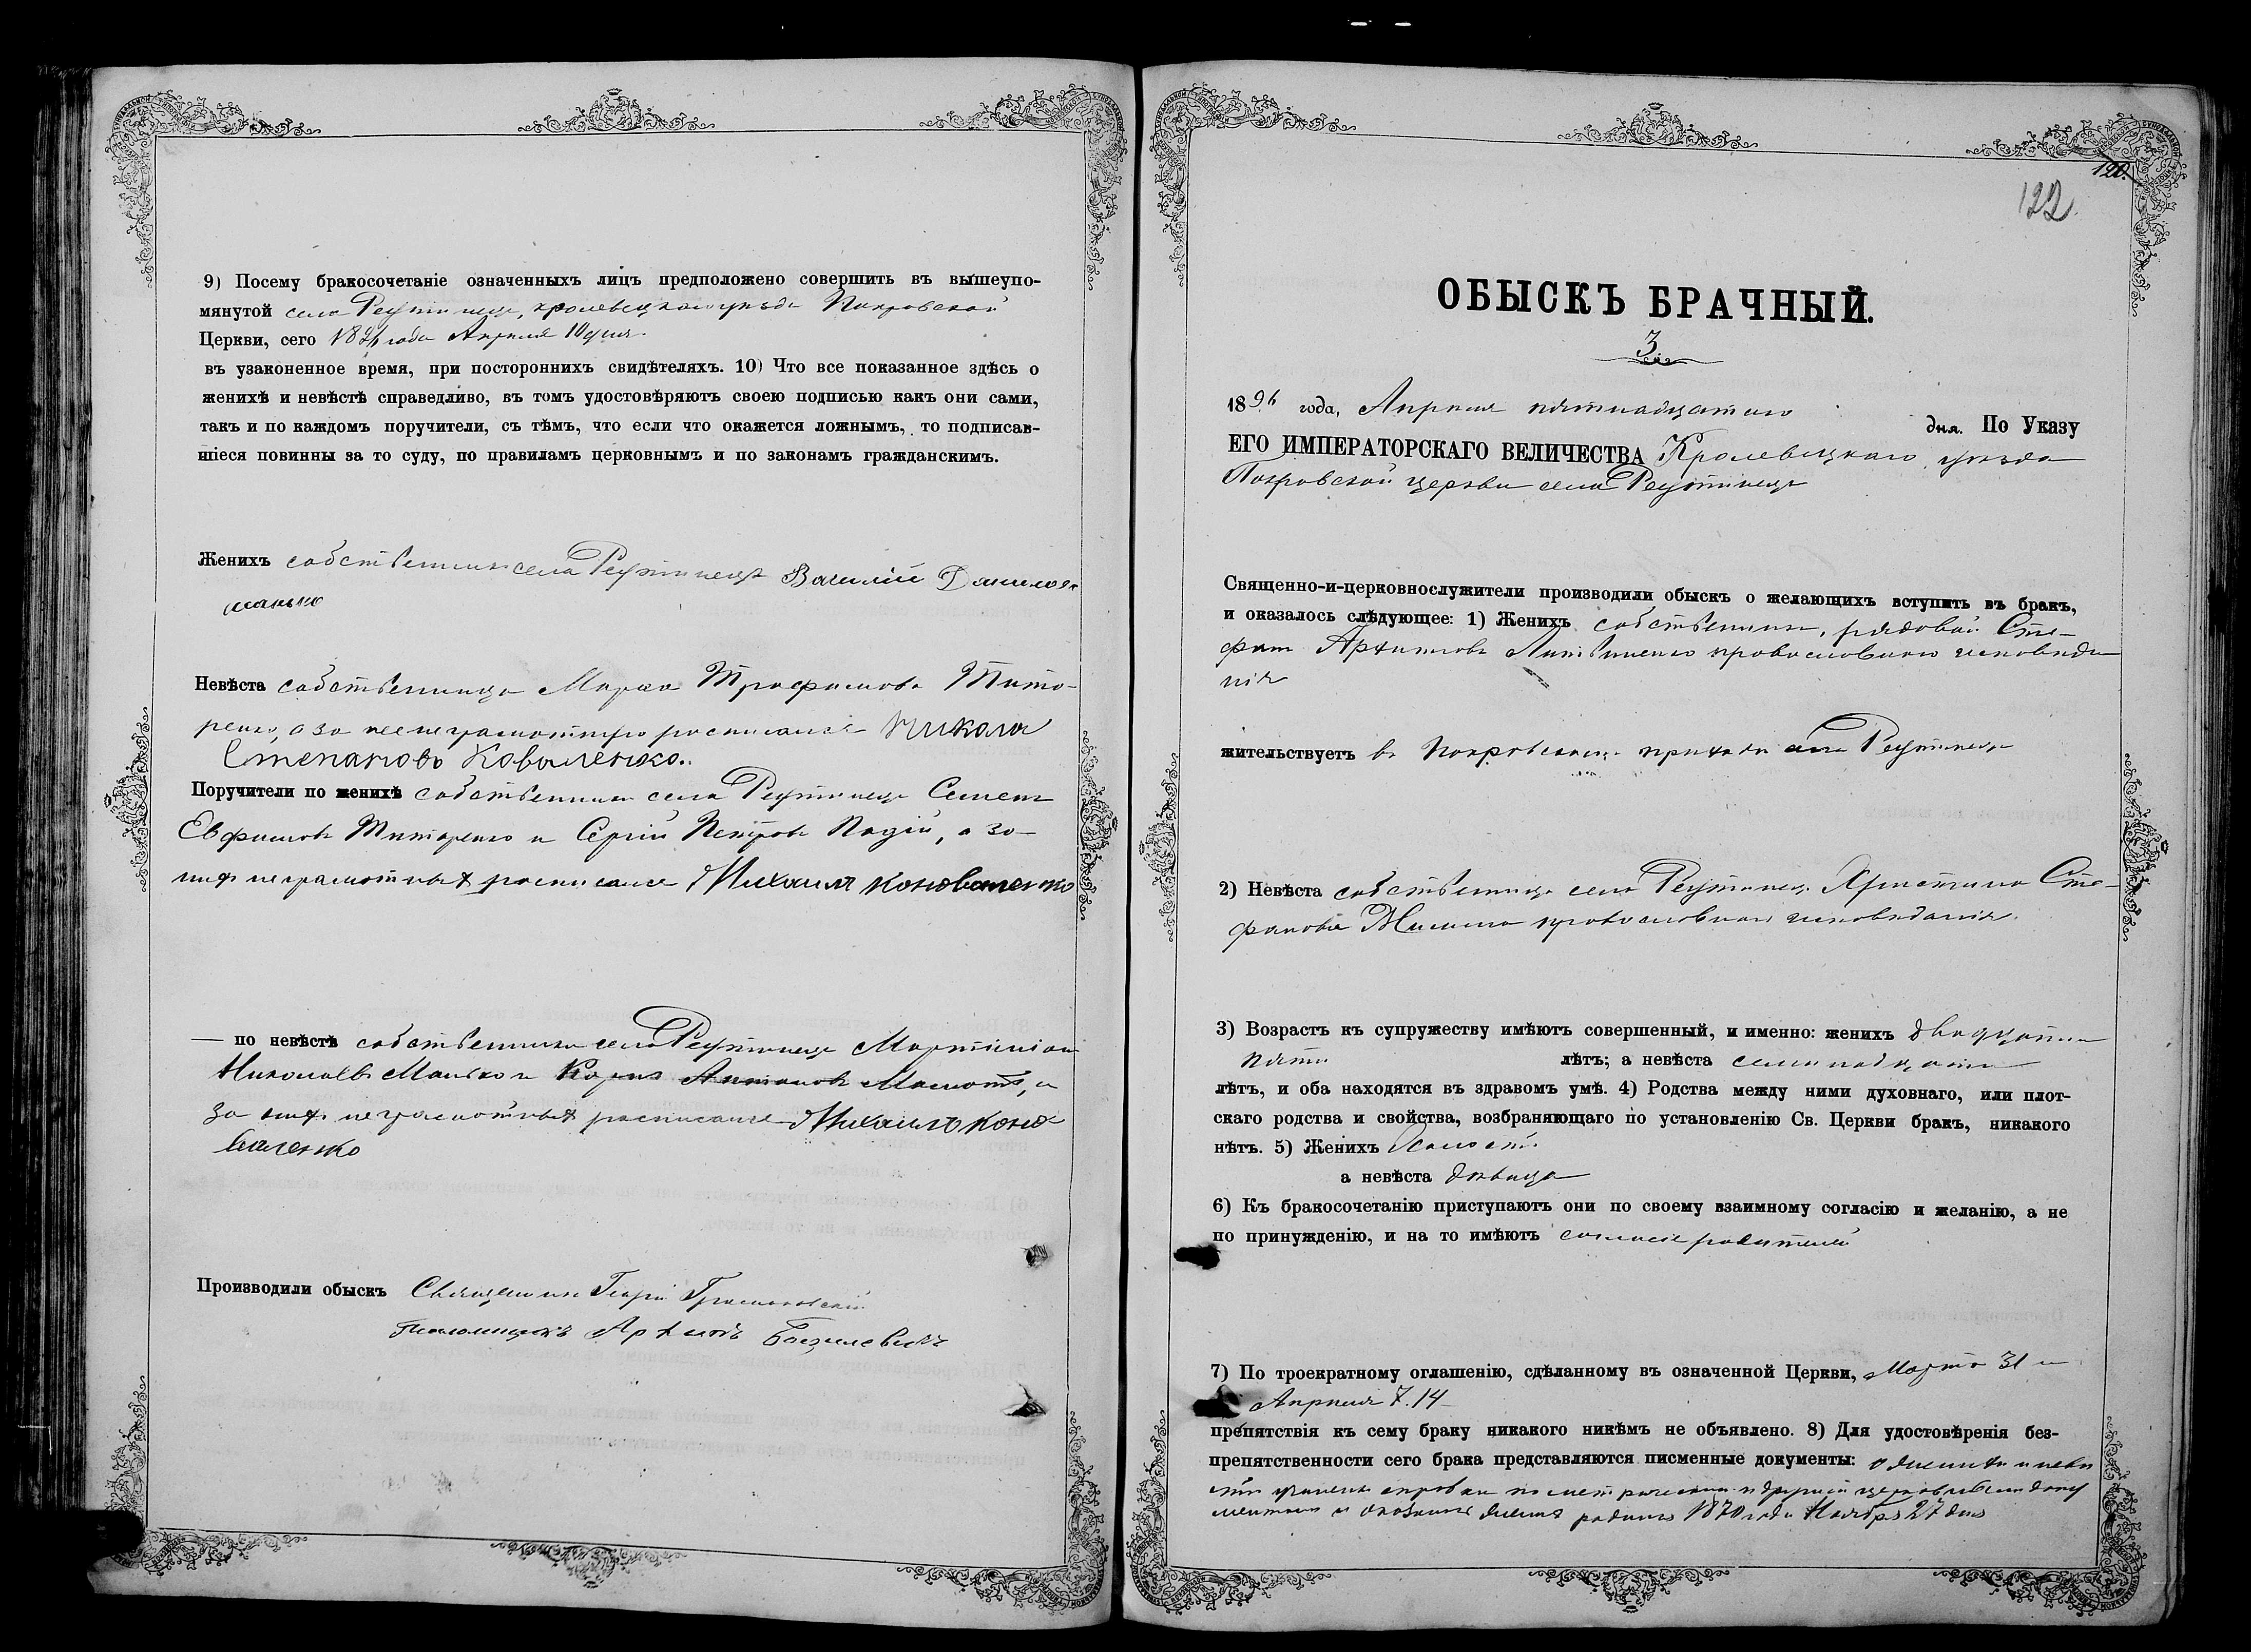 9) Посему бракосочетаніе означенныхъ лицъ предположено совершить въ вышеупо-
мянутой села Реутинецъ, кролевецкаго уѣзда Покровской
Церкви, сего 1896 года Апрѣля 10 дня.
въ узаконенное время, при постороннихъ свидѣтеляхъ. 10) Что все показанное здѣсь о
женихѣ и невѣстѣ справедливо, въ томъ удостовѣряютъ своею подписью какъ они сами,
такъ и по каждомъ поручители, съ тѣмъ, что если что окажется ложнымъ, то подписав-
шіеся повинны за то суду, по правиламъ церковнымъ и по законамъ гражданскимъ.
Женихъ собственникъ села Реутинецъ Василій
манько
Невѣста собственница Марѳа Трофимова Тито-
ренко, а за нее неграмотную росписался Никола
Степановъ Коваленко.
Поручители по женихѣ собственники села Реутинецъ Семенъ
Евфимовъ Титаренко и Сергій Петровъ Падій, а за
нихъ неграмотныхъ росписался Михаилъ Коноваленко
— по невѣстѣ собственники села Реутинецъ Мартиніанъ
Николаевъ Манько и Карпъ Антоновъ Мамотъ, а
за нихъ неграмотныхъ росписался Михаилъ Коно
валенко
Производили обыскъ Священникъ Георгій
Псаломщикъ Архипъ Базилевичъ
120.
122.
ОБЫСКЪ БРАЧНЫЙ.
3
1896 года, Апрѣля пятнадцатаго дня. По Указу
ЕГО ИМПЕРАТОРСКАГО ВЕЛИЧЕСТВА Кролевецкаго уѣзда
Покровской церкви села Реутинецъ
Священно-и-церковнослужители производили обыскъ о желающихъ вступить въ бракъ,
и оказалось слѣдующее: 1) Женихъ собственникъ, рядовой Сте-
фанъ Архиповъ Литвиненко православнаго исповѣда
нія
жительствуетъ въ Покровскомъ приходѣ села Реутинецъ
2) Невѣста собственница села Реутинецъ Христина Сте-
фанова православнаго исповѣданія.
3) Возрастъ къ супружеству имѣютъ совершенный, и именно: женихъ двадцати
пяти лѣтъ; а невѣста семнадцати
лѣтъ, и оба находятся въ здравомъ умѣ. 4) Родства между ними духовнаго, или плот-
скаго родства и свойства, возбраняющаго по установленію Св. Церкви бракъ, никакого
нѣтъ. 5) Женихъ Холостъ
а невѣста дѣвица
6) Къ бракосочетанію приступаютъ они по своему взаимному согласію и желанію, а не
по принужденію, и на то имѣютъ согласіе родителей
7) По троекратному оглашенію, сдѣланному въ означенной Церкви, Марта 31 и
Апрѣля 7. 14
препятствія къ сему браку никакого никѣмъ не объявлено. 8) Для удостовѣренія без-
препятственности сего брака представляются писменные документы: о женихѣ и невѣ
стѣ справки по метрическимъ и другимъ церковнымъ доку
ментамъ и женихъ родился 1870 года Ноября 27 дня